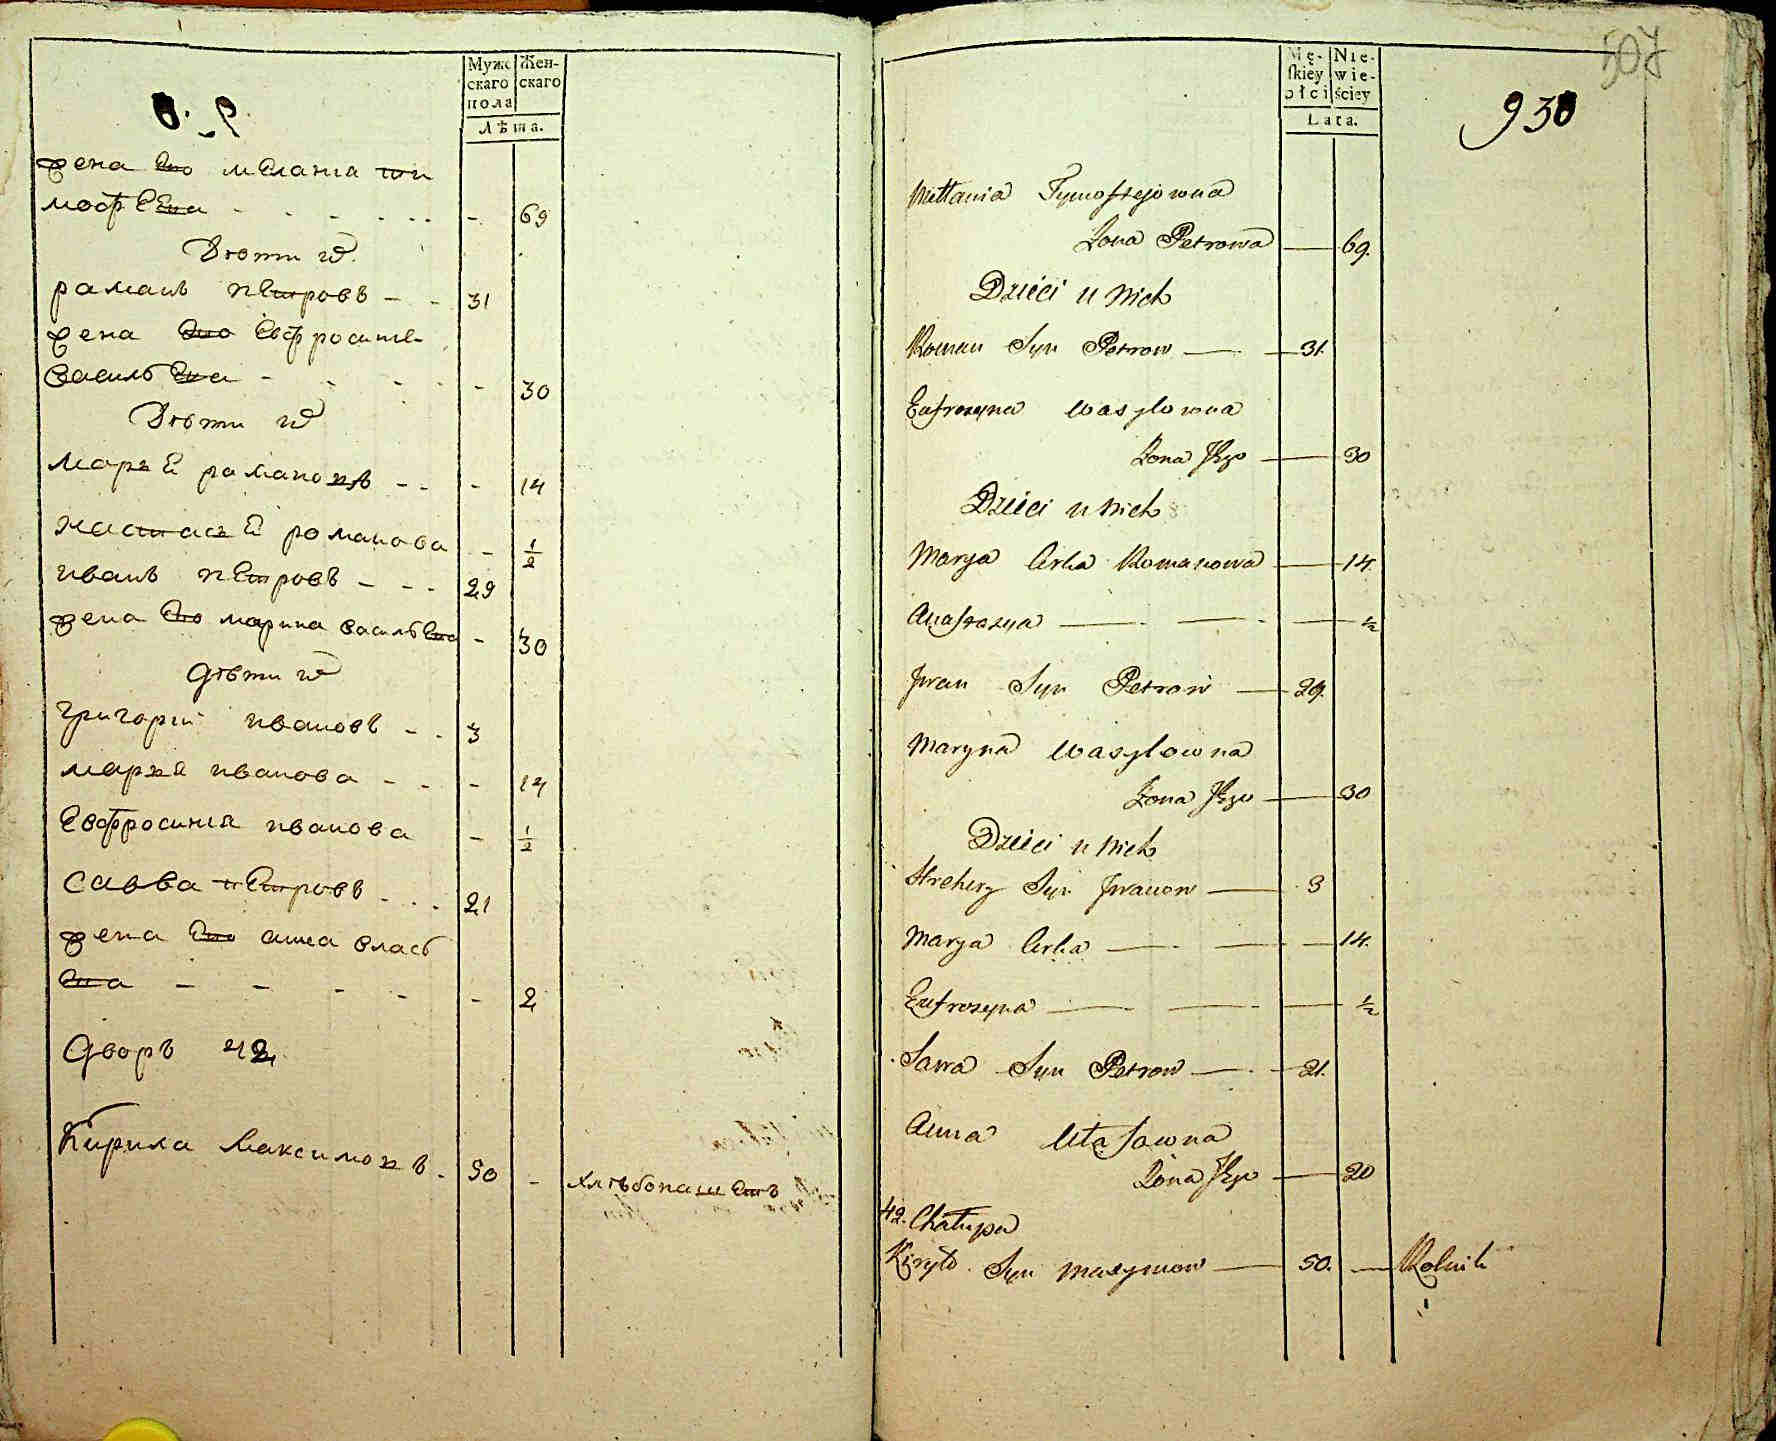 Мужс
скаго
пола
Жен-
скаго
Лѣта.
жена Его меланиа ти
мофѣева - - - - - - - 69
Дѣти их
раманъ петровъ - - 31
жена Его Евфросинѣ
васильева - - - - - 30
Дѣти их
марьѣ раманова - - - 14
настасьѣ романова - 1/2
иванъ петровъ - - - 29
жена Его марина васильева - 30
Дѣти их
григорий ивановъ - - 3
марья иванова - - - 14
Евфросиния иванова - 1/2
савва петровъ - - - 21
жена Его анна влась
ева - - - - - 2
Дворъ 42
Кирила Максимовъ - 50 - хлѣбопашецъ
Mę-
skiey
płci
Nie-
wie-
ściey
Lata.
507
930
Mełania Tymofiejowna
Żona Petrowa — 69.
Dzieci u nich
Roman Syn Petrow — — 31.
Eufrozyna Wasylowna
Żona Jego — 30
Dzieci u nich
Marya Corka Romanowa — 14.
Anastazya — — - — 1/2
Jwan Syn Petrow — 29.
Maryna Wasylowna
Żona Jego — 30
Dzieci u nich
Hrehory Syn Jwanow — 3
Marya Corka — — — 14.
Eufrozyna — — - — 1/2
Sawa Syn Petrow — - — 21.
Anna Ułasowna
Żona Jego — 20
42. Chałupa
Kiryło Syn Maxymow — 50. — Rolnik